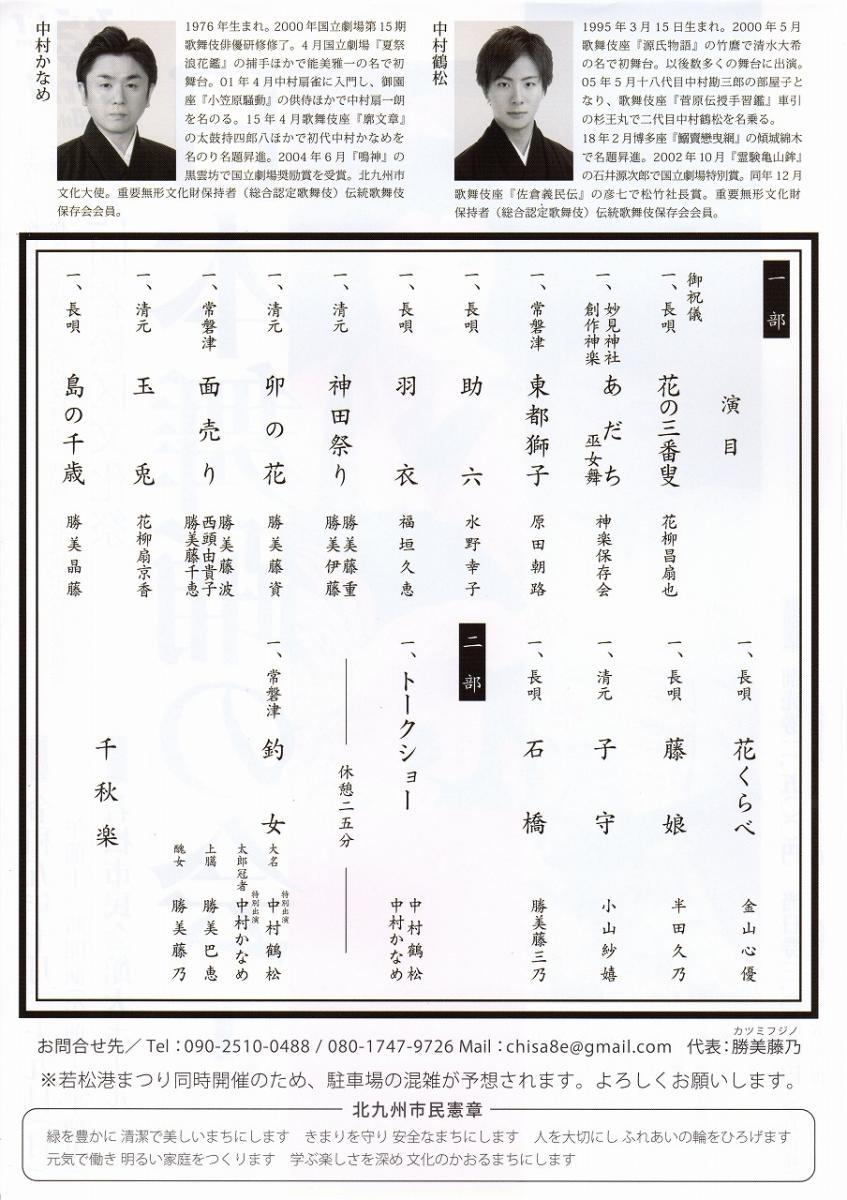 中村かなめ
1976年生まれ。2000年国立劇場第15期
歌舞伎俳優研修修了。4月国立劇場『夏祭
浪花鑑』の捕手ほかで能美雅一の名で初
舞台。01年4月中村扇雀に入門し、御園
座『小笠原騒動』の供侍ほかで中村扇一朗
を名のる。15年4月歌舞伎座『廓文章』
の太鼓持四郎八ほかで初代中村かなめを
名のり名題昇進。2004年6月『鳴神』の
黒雲坊で国立劇場奨励賞を受賞。北九州市
文化大使。重要無形文化財保持者（総合認定歌舞伎）伝統歌舞伎
保存会会員。
中村鶴松
1995年3月15日生まれ。2000年5月
歌舞伎座『源氏物語』の竹麿で清水大希
の名で初舞台。以後数多くの舞台に出演。
05年5月十八代目中村勘三郎の部屋子と
なり、歌舞伎座『菅原伝授手習鑑』車引
の杉王丸で二代目中村鶴松を名乗る。
18年2月博多座『鰯賣戀曳網』の傾城錦木
で名題昇進。2002年10月『霊験亀山鉾』
の石井源次郎で国立劇場特別賞。同年12月
歌舞伎座『佐倉義民伝』の彦七で松竹社長賞。重要無形文化財
保持者（総合認定歌舞伎）伝統歌舞伎保存会会員。
一部
演目
御祝儀
一、長唄 花の三番叟 花柳昌扇也
一、妙見神社 創作神楽 あだち 巫女舞 神楽保存会
一、常磐津 東都獅子 原田朝路
一、長唄 助六 水野幸子
一、長唄 羽衣 福垣久恵
一、清元 神田祭り 勝美藤重 勝美伊藤
一、清元 卯の花 勝美藤資
一、常磐津 面売り 勝美藤波 西頭由貴子 勝美藤千恵
一、清元 玉兎 花柳扇京香
一、長唄 島の千歳 勝美晶藤
一、長唄 花くらべ 金山心優
一、長唄 藤娘 半田久乃
一、清元 子守 小山紗嬉
一、長唄 石橋 勝美藤三乃
二部
一、トークショー 中村鶴松 中村かなめ
休憩二五分
一、常磐津 釣女
大名 特別出演 中村鶴松
太郎冠者 特別出演 中村かなめ
上臈 勝美巴恵
醜女 勝美藤乃
千秋楽
お問合せ先／Tel：090-2510-0488 / 080-1747-9726 Mail：chisa8e@gmail.com 代表：勝美藤乃
カツミフジノ
※若松港まつり同時開催のため、駐車場の混雑が予想されます。よろしくお願いします。
北九州市民憲章
緑を豊かに 清潔で美しいまちにします きまりを守り 安全なまちにします 人を大切にし ふれあいの輪をひろげます
元気で働き 明るい家庭をつくります 学ぶ楽しさを深め 文化のかおるまちにします